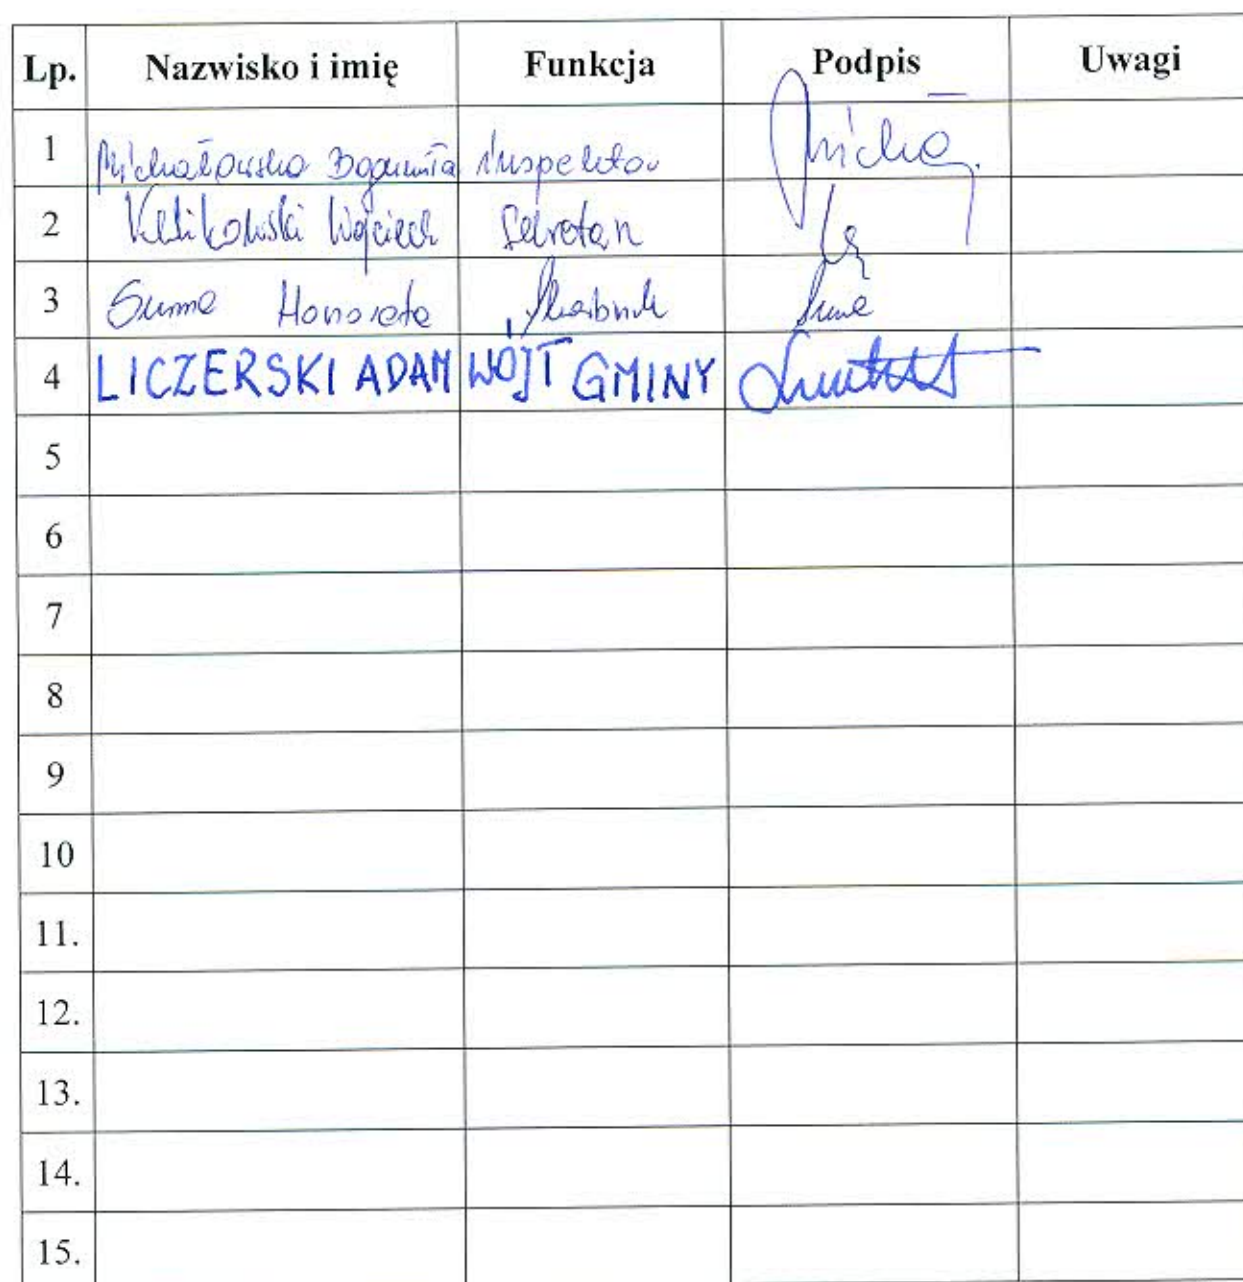 Lp. Nazwisko i imię Funkcja Podpis Uwagi
1 Michałowska Bogumiła inspektor
2 Wojciech Sekretarz
3 Suma Honorata Skarbnik
4 LICZERSKI ADAM WÓJT GMINY
5
6
7
8
9
10
11.
12.
13.
14.
15.